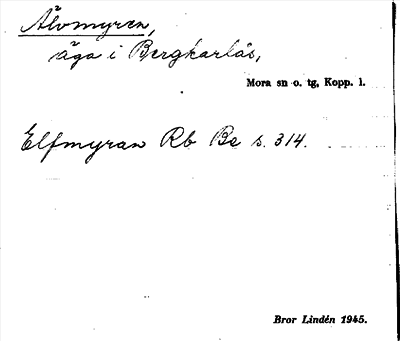 Älvmyren,
äga i Bergkarlås,
Mora sn o. tg, Kopp. l.
Elfmyran Rb Be s. 314.
Bror Lindén 1945.